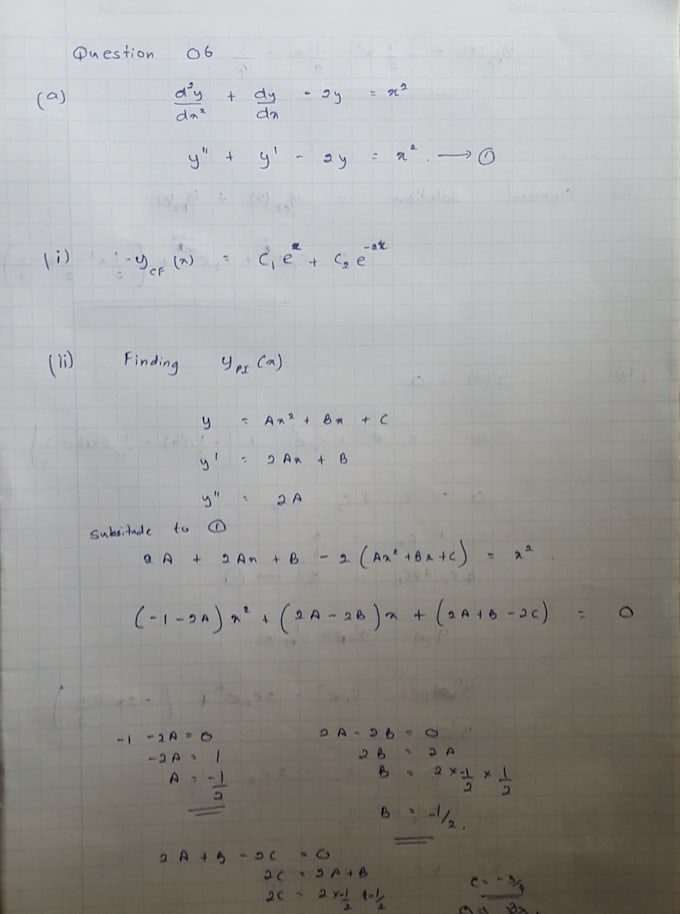 Question 06
(a) d²y/dx² + dy/dx - 2y = x²
y" + y' - 2y = x². → ①
(i) y_CF (x) = C₁eˣ + C₂e⁻²ˣ
(ii) Finding y_PI (x)
y = Ax² + Bx + C
y' = 2Ax + B
y" = 2A
Subsitude to ①
2A + 2Ax + B - 2(Ax² + Bx + C) = x².
(-1-2A)x² + (2A - 2B)x + (2A+B-2C) = 0
-1 - 2A = 0 2A - 2B = 0
-2A = 1 2B = 2A
A = -1/2 B = 2 × -1/2 × 1/2
B = -1/2.
2A + B - 2C = 0
2C = 2A + B C = -3/4
2C = 2 × -1/2 + -1/2